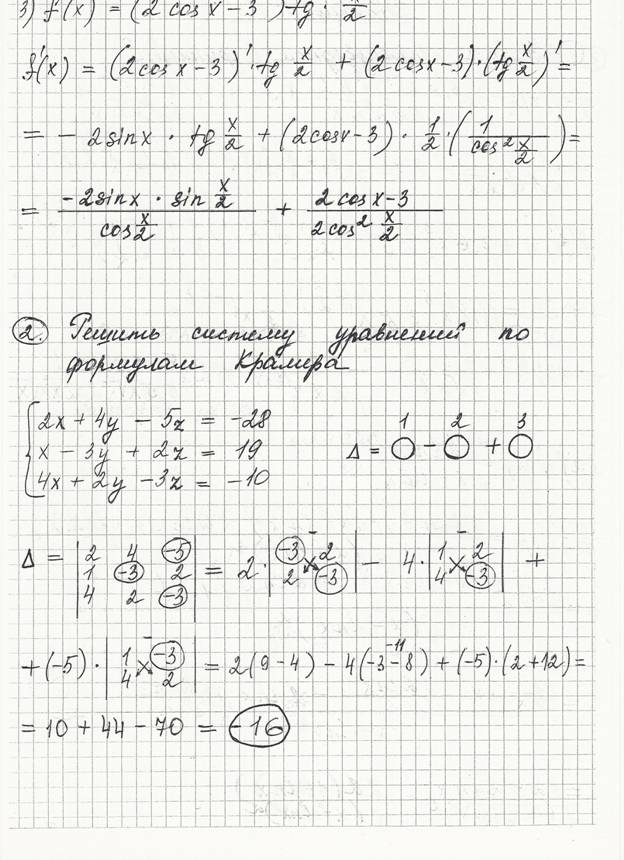 3) f'(x) = (2 cos x - 3) tg · x/2
f'(x) = (2cos x - 3)' · tg x/2 + (2cos x - 3) · (tg x/2)' =
= - 2 sin x · tg x/2 + (2cos x - 3) · 1/2 · (1/cos² x/2) =
= -2 sin x · sin x/2 / cos x/2 + 2 cos x - 3 / 2cos² x/2
2. Решить систему уравнений по
формулам Крамера
2x + 4y - 5z = -28
x - 3y + 2z = 19
4x + 2y - 3z = -10
1 2 3
Δ = ○ - ○ + ○
Δ = |2 4 -5; 1 -3 2; 4 2 -3| = 2 · |-3 2; 2 -3| - 4 · |1 2; 4 -3| +
+ (-5) · |1 -3; 4 2| = 2(9 - 4) - 4(-3 - 8) + (-5) · (2 + 12) =
-11
= 10 + 44 - 70 = -16